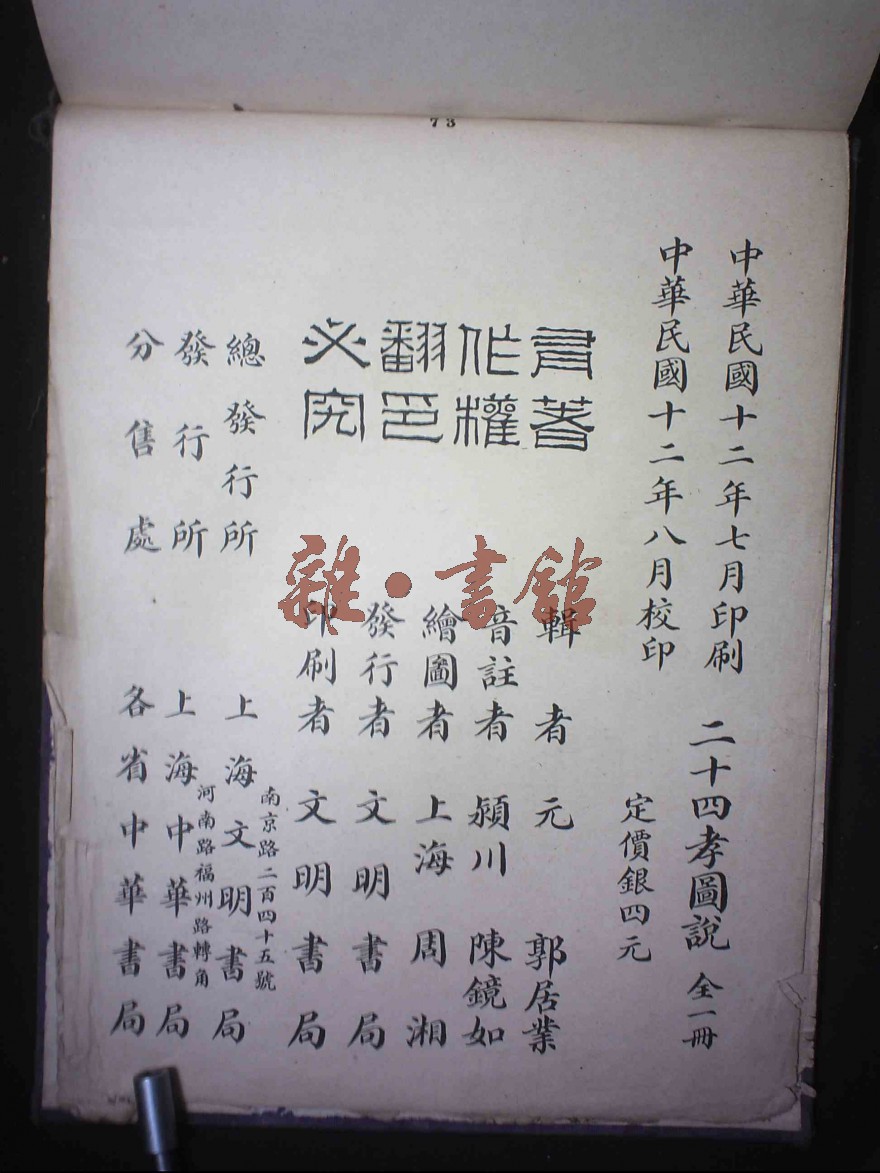 73
中華民國十二年七月印刷
中華民國十二年八月校印
二十四孝圖說 全一冊
定價銀四元
有著
作權
翻印
必究
輯者 元 郭居業
音註者 潁川 陳鏡如
繪圖者 上海 周湘
發行者 文明書局
印刷者 文明書局
總發行所 上海文明書局
南京路二百四十五號
發行所 上海中華書局
河南路福州路轉角
分售處 各省中華書局
雜·書館